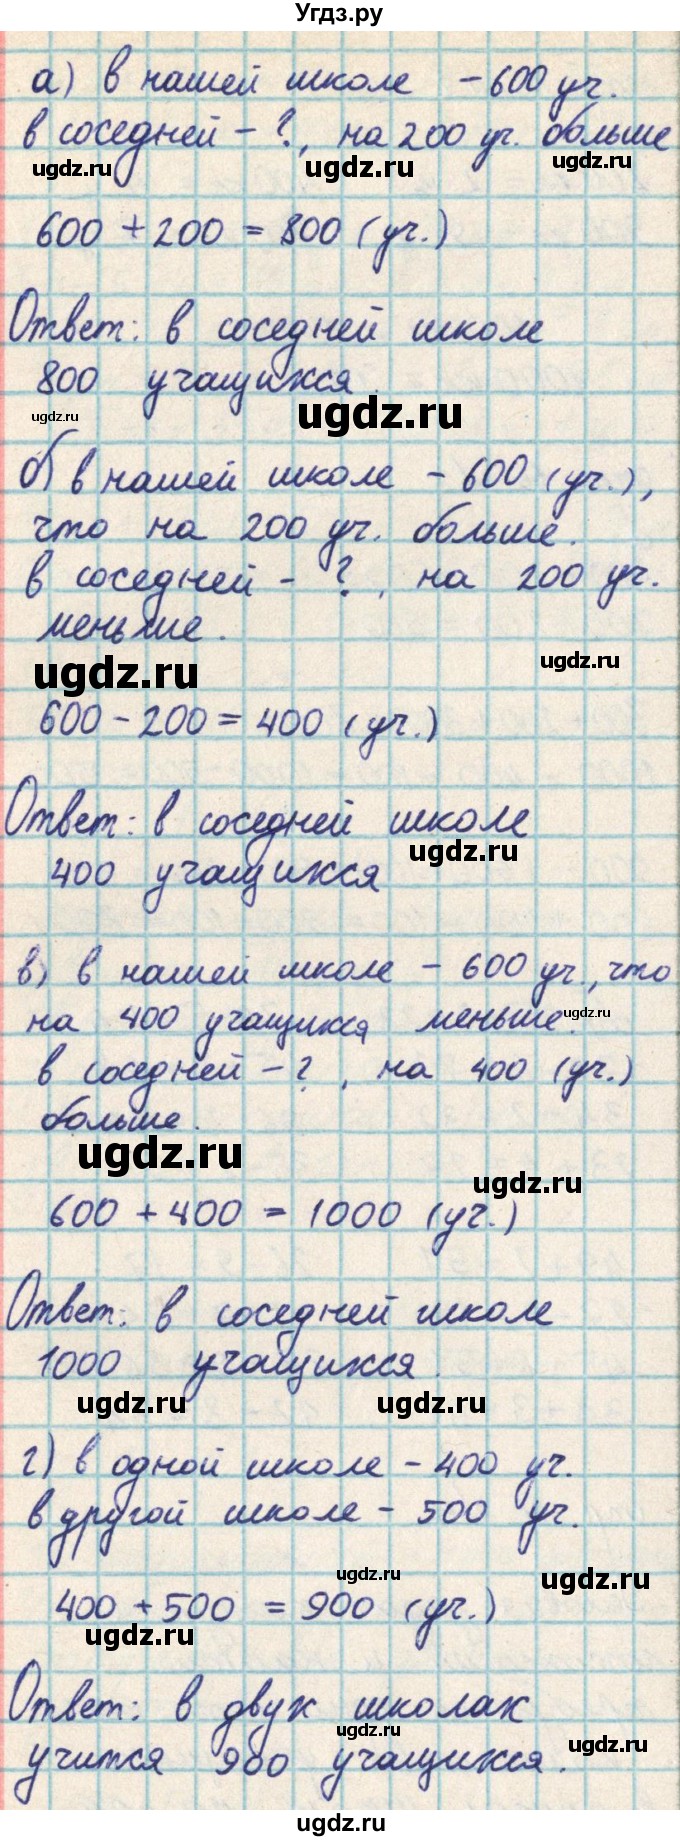 Угдз.ру
а) в нашей школе - 600 уч.
в соседней - ?, на 200 уч. больше
ugdz.ru ugdz.ru ugdz.ru
600 + 200 = 800 (уч.)
Ответ: в соседней школе
800 учащихся.
ugdz.ru ugdz.ru
б) в нашей школе - 600 (уч.),
что на 200 уч. больше.
в соседней - ?, на 200 уч.
меньше.
ugdz.ru ugdz.ru
600 - 200 = 400 (уч.)
Ответ: в соседней школе
ugdz.ru
400 учащихся
в) в нашей школе - 600 уч., что
на 400 учащихся меньше.
ugdz.ru
в соседней - ?, на 400 (уч.)
больше.
ugdz.ru
ugdz.ru
600 + 400 = 1000 (уч.)
Ответ: в соседней школе
1000 учащихся.
ugdz.ru ugdz.ru
г) в одной школе - 400 уч.
в другой школе - 500 уч.
ugdz.ru ugdz.ru
400 + 500 = 900 (уч.)
ugdz.ru
Ответ: в двух школах
ugdz.ru ugdz.ru
учится 900 учащихся.
ugdz.ru